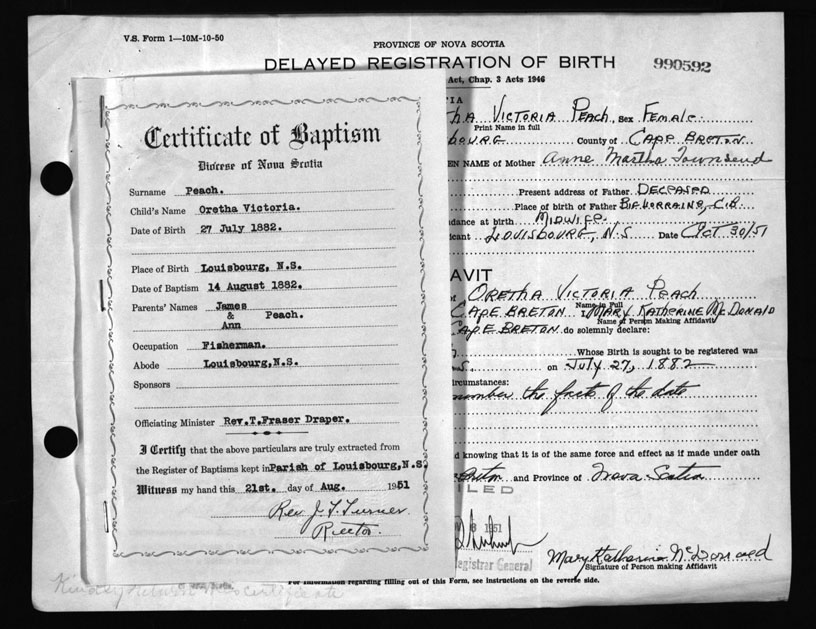 V.S. Form 1—10M-10-50
PROVINCE OF NOVA SCOTIA
DELAYED REGISTRATION OF BIRTH
990592
Act, Chap. 3 Acts 1946
Certificate of Baptism
Diocese of Nova Scotia
Surname Peach.
Child's Name Oretha Victoria.
Date of Birth 27 July 1882.
Place of Birth Louisbourg, N.S.
Date of Baptism 14 August 1882.
Parents' Names James
& Peach.
Ann
Occupation Fisherman.
Abode Louisbourg,N.S.
Sponsors
Officiating Minister Rev.T.Fraser Draper.
I Certify that the above particulars are truly extracted from
the Register of Baptisms kept in Parish of Louisbourg,N.S.
Witness my hand this 21st. day of Aug. 1951
Rev. J. F. Turner
Rector.
TIA
THA VICTORIA PEACH, Sex FEMALE
Print Name in full
BOURG County of CAPE BRETON
EN NAME of Mother Anne Martha Townsend
Present address of Father DECEASED
Place of birth of Father BIG LORRAINE, C.B.
dance at birth MIDWIFE
icant LOUISBOURG, N.S Date OCT 30/51
AVIT
of ORETHA VICTORIA PEACH
Name in Full
CAPE BRETON I, MARY KATHERINE McDONALD
Name of Person Making Affidavit
CAPE BRETON do solemnly declare:
Whose Birth is sought to be registered was
on July 27, 1882
ircumstances:
member the facts of the date
d knowing that it is of the same force and effect as if made under oath
Breton and Province of Nova Scotia
ILED
8 1951
Registrar General
Mary Katharine McDonald
Signature of Person making Affidavit
For information regarding filling out of this Form, see instructions on the reverse side.
Kindly return this certificate